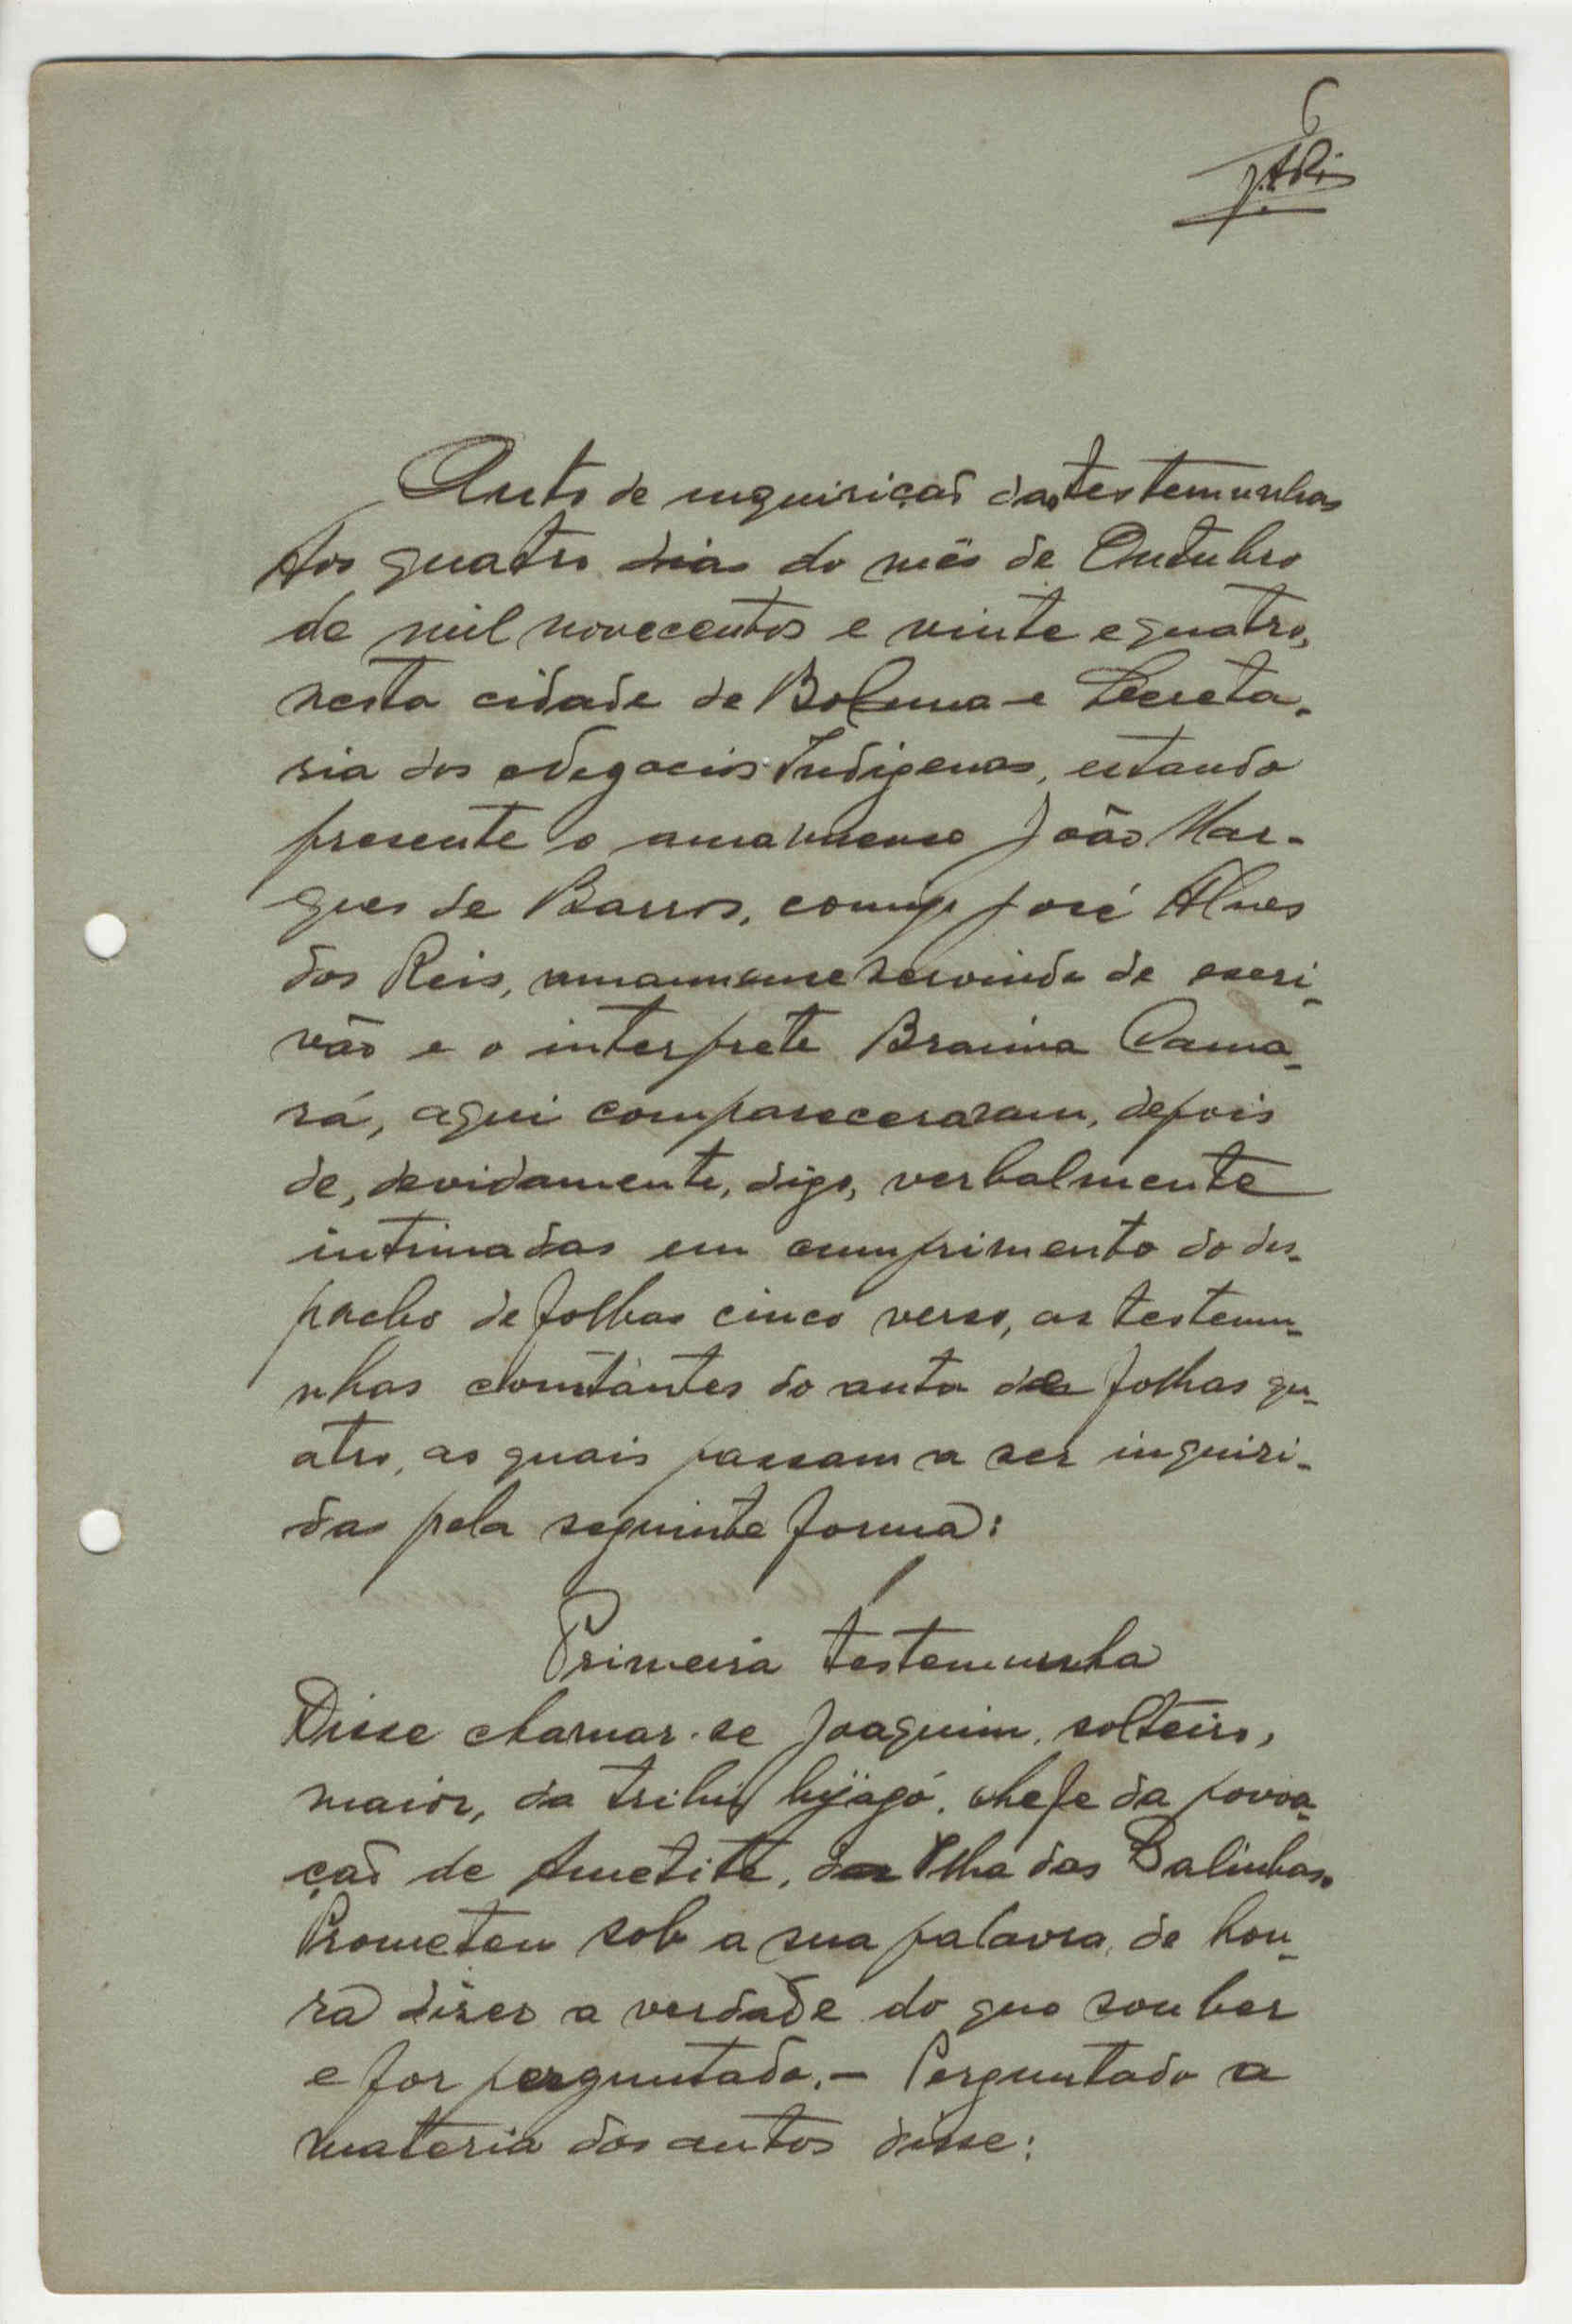 6
J.A.Reis
Auto de inquirição das testemunhas
Aos quatro dias do mês de Outubro
de mil novecentos e vinte e quatro,
nesta cidade de Bolama e Secreta-
ria dos Negocios Indigenas, estando
presente o amanuense João Mar-
ques de Barros, comigo José Alves
dos Reis, amanuense servindo de escri-
vão e o interprete Braima Cama-
rá, aqui compareceraram, depois
de, devidamente, digo, verbalmente
intimadas em cumprimento do des-
pacho de folhas cinco verso, as testemu-
nhas constantes do auto de folhas qu-
atro, as quais passam a ser inquiri-
das pela seguinte forma:
Primeira testemunha
Disse chamar-se Joaquim, solteiro,
maior, da tribu bijagó, chefe da povoa-
ção de Ametite, da Ilha das Galinhas.
Prometeu sob a sua palavra de hon-
ra dizer a verdade do que souber
e for perguntado. — Perguntado a
materia dos autos disse: